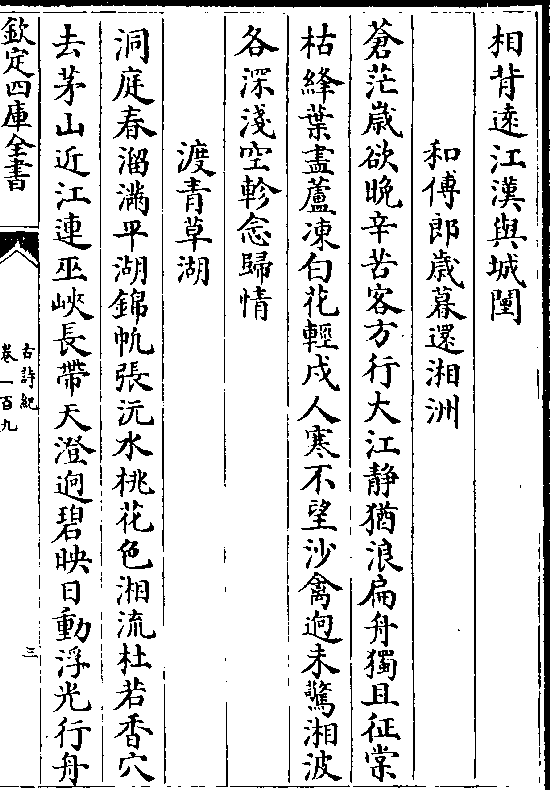 相背逺江漢與城闉
和傅郎歳暮還湘洲
蒼茫嵗欲晚辛苦客方行大江靜猶浪扁舟獨且征棠
枯絳葉盡蘆凍白花輕戍人寒不望沙禽逈未驚湘波
各深淺空軫念歸情
渡青草湖
洞庭春溜滿平湖錦㠶張沅水桃花色湘流杜若香穴
去茅山近江連巫峽長帶天澄逈碧映日動浮光行舟
欽定四庫全書
古詩紀
卷一百九
三